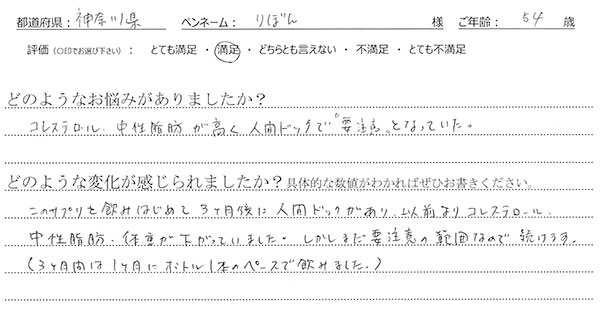 都道府県：神奈川県 ペンネーム：りぼん 様 ご年齢：54 歳
評価（○印でお選び下さい） とても満足・満足・どちらとも言えない・不満足・とても不満足
どのようなお悩みがありましたか？
コレステロール、中性脂肪が高く、人間ドックで"要注意"となっていた。
どのような変化が感じられましたか？具体的な数値がわかればぜひお書きください。
このサプリを飲みはじめて3ヶ月後に人間ドックがあり、以前よりコレステロール、
中性脂肪・体重が下がっていました。しかしまだ要注意の範囲なので続けます。
（3ヶ月間は1ヶ月にボトル1本のペースで飲みました。）